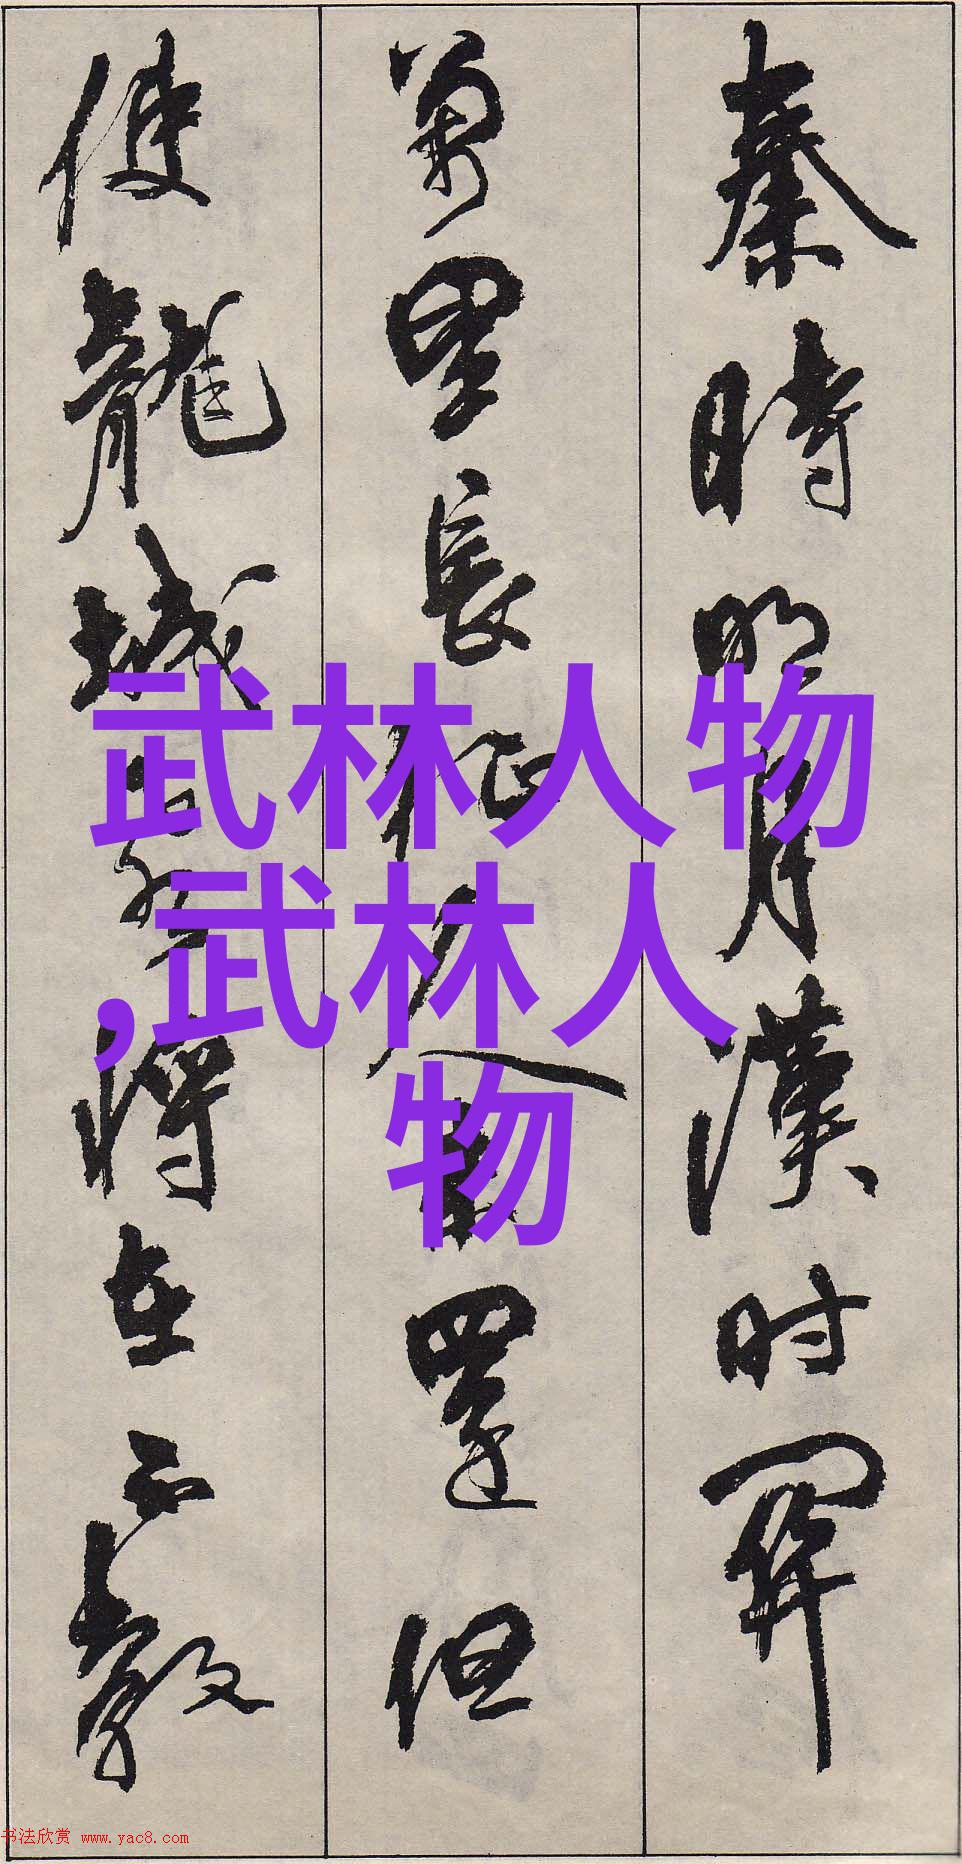 秦時明月漢时関
萬里長征人未還但
使龍城飛将在不教
武林人物
,武林人
物
书法欣赏 www.yac8.com